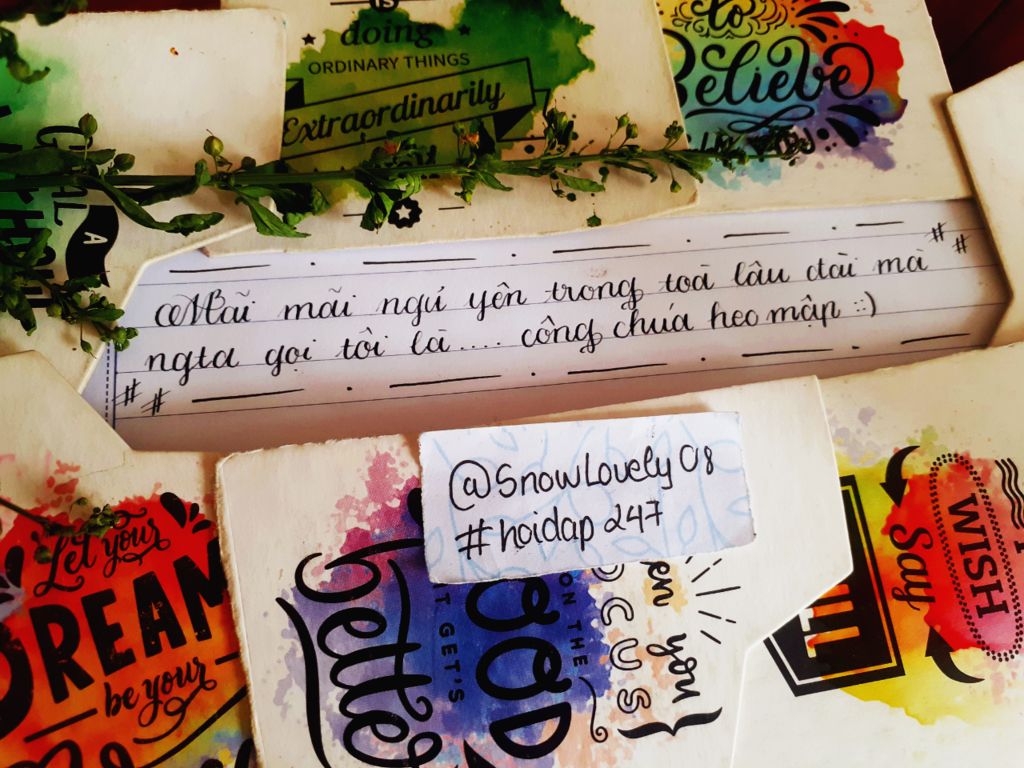 IS
doing
ORDINARY THINGS
Extraordinarily
to
Believe
A
Mãi mãi ngủ yên trong toà lâu đài mà
ngta gọi tôi là.... công chúa heo mập ::)
@SnowLovely08
#hoidap247
Let your
DREAM
be your
bette
IT GET'S
GOOD
ON THE
FOCUS
en you
Say
WISH